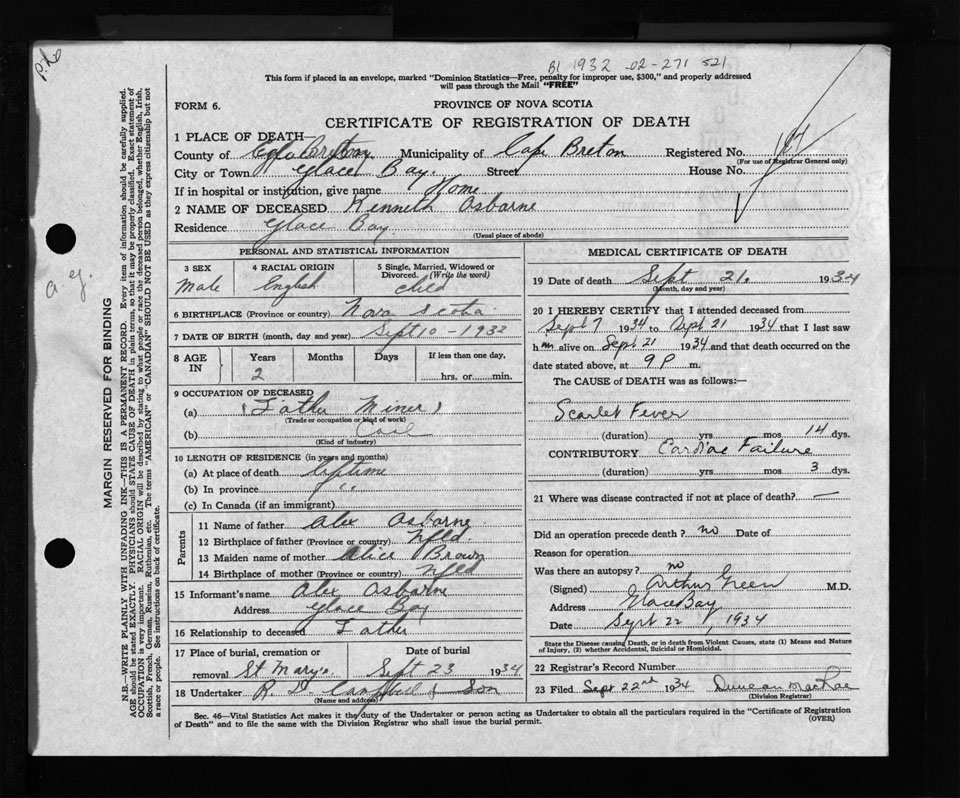 B1 1932 02-271 521
This form if placed in an envelope, marked "Dominion Statistics—Free, penalty for improper use, $300," and properly addressed
will pass through the Mail "FREE"
FORM 6.
PROVINCE OF NOVA SCOTIA
CERTIFICATE OF REGISTRATION OF DEATH
1 PLACE OF DEATH—
County of Cape Breton Municipality of Cape Breton Registered No.
(For use of Registrar General only)
City or Town Glace Bay. Street House No.
If in hospital or institution, give name Home
2 NAME OF DECEASED Kenneth Osborne
Residence Glace Bay.
(Usual place of abode)
PERSONAL AND STATISTICAL INFORMATION
3 SEX Male
4 RACIAL ORIGIN English
5 Single, Married, Widowed or Divorced. (Write the word) Child
6 BIRTHPLACE (Province or country) Nova Scotia
7 DATE OF BIRTH (month, day and year) Sept 10 - 1932
8 AGE IN Years Months Days If less than one day,
2 hrs. or min.
9 OCCUPATION OF DECEASED
(a) (Father Miner)
(Trade or occupation or kind of work)
(b) Coal
(Kind of industry)
10 LENGTH OF RESIDENCE (in years and months)
(a) At place of death Lifetime
(b) In province " "
(c) In Canada (if an immigrant)
Parents
11 Name of father Alex Osborne
12 Birthplace of father (Province or country) Nfld.
13 Maiden name of mother Alice Brown
14 Birthplace of mother (Province or country) Nfld
15 Informant's name Alex Osborne
Address Glace Bay
16 Relationship to deceased Father
17 Place of burial, cremation or removal St Marys Date of burial Sept 23 1934
18 Undertaker R. D. Campbell & Son
(Name and address)
MEDICAL CERTIFICATE OF DEATH
19 Date of death Sept 21. 1934
(Month, day and year)
20 I HEREBY CERTIFY that I attended deceased from
Sept 7 1934 to Sept 21 1934 that I last saw
him alive on Sept 21 1934 and that death occurred on the
date stated above, at 9 P m.
The CAUSE OF DEATH was as follows:—
Scarlet Fever
(duration) yrs mos 14 dys.
CONTRIBUTORY Cardiac Failure
(duration) yrs mos 3 dys.
21 Where was disease contracted if not at place of death? —
Did an operation precede death? no Date of
Reason for operation
Was there an autopsy? no
(Signed) Arthur Green M.D.
Address Glace Bay
Date Sept 22, 1934
State the Disease causing Death, or in death from Violent Causes, state (1) Means and Nature
of Injury, (2) whether Accidental, Suicidal or Homicidal.
22 Registrar's Record Number
23 Filed Sept 22nd 1934 Duncan MacRae
(Division Registrar)
Sec. 46—Vital Statistics Act makes it the duty of the Undertaker or person acting as Undertaker to obtain all the particulars required in the "Certificate of Registration
of Death" and to file the same with the Division Registrar who shall issue the burial permit.
(OVER)
MARGIN RESERVED FOR BINDING
N.B.—WRITE PLAINLY WITH UNFADING INK—THIS IS A PERMANENT RECORD. Every item of information should be carefully supplied.
AGE should be stated EXACTLY. PHYSICIANS should STATE CAUSE OF DEATH in plain terms, so that it may be properly classified. Exact statement of
OCCUPATION is very important. RACIAL ORIGIN will be described by stating to what people or race the deceased person belonged, whether English, Irish,
Scottish, French, German, Russian, Ruthenian, etc. The terms "AMERICAN" or "CANADIAN" SHOULD NOT BE USED as they express citizenship but not
a race or people. See instructions on back of certificate.